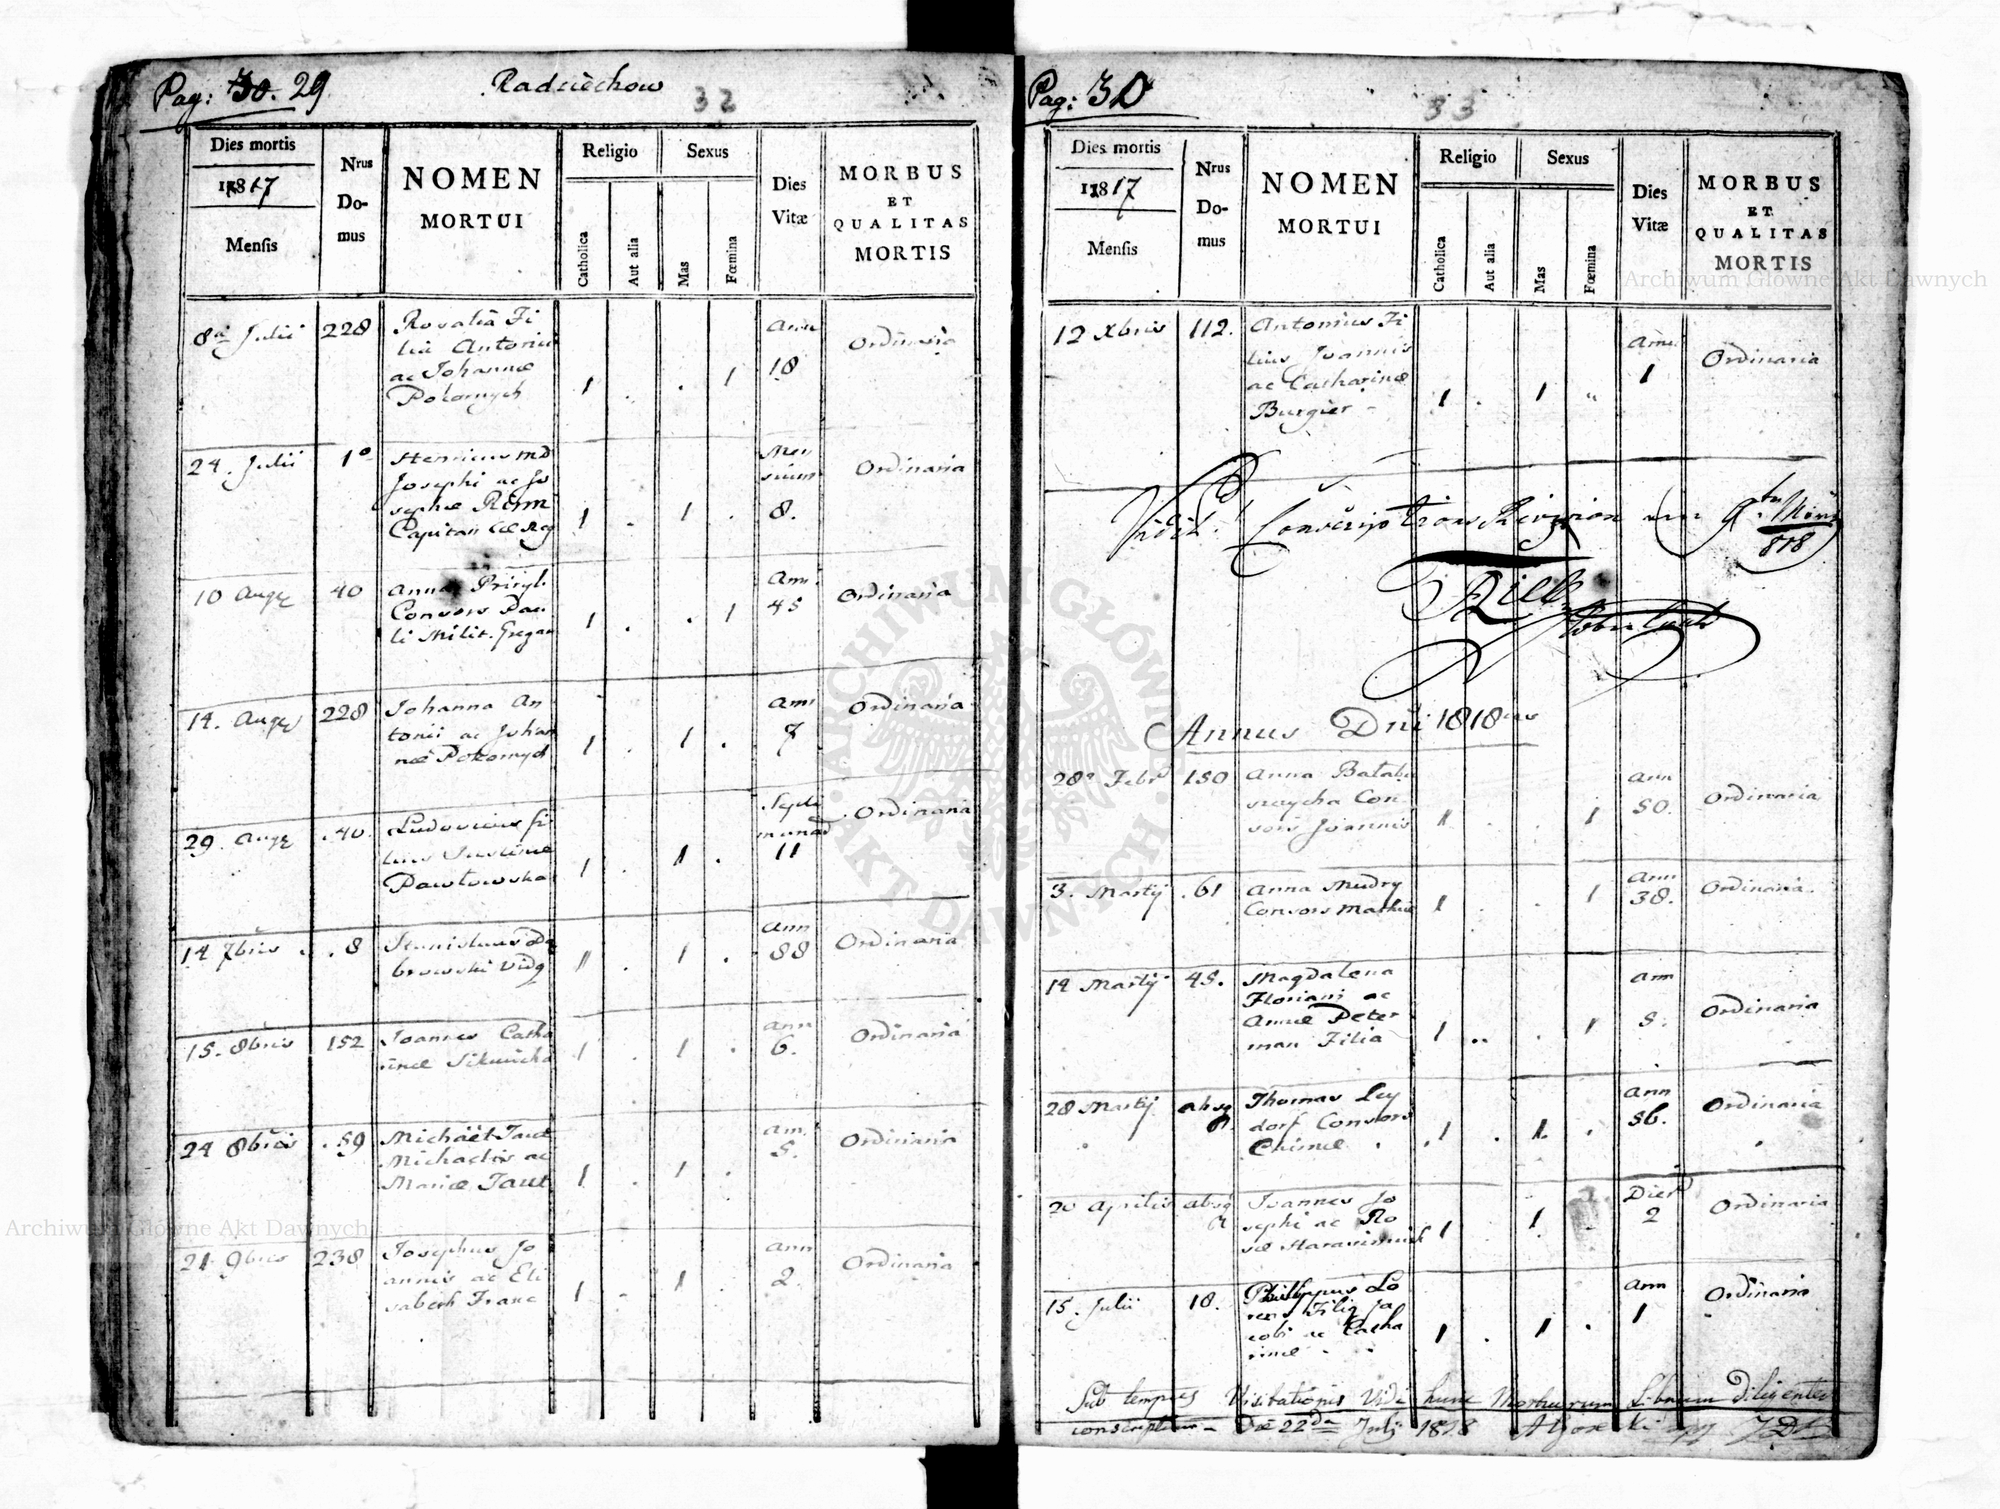 Pag: 30. 29
Radziechow
32
Dies mortis
1817
Mensis
Nrus
Do-
mus
NOMEN
MORTUI
Religio
Catholica
Aut alia
Sexus
Mas
Fœmina
Dies
Vitæ
MORBUS
ET
QUALITAS
MORTIS
8a Julii 228 Rosalia Fi
lia Antonii
ac Johannæ
Pokornych
1 . . 1
Ann
18
Ordinaria
24. Julii 1o Henricus
Josephi ac Jo
sephæ
Capitan
1 . 1
Men
sium
8.
Ordinaria
10 Aug 40 Anna
Consors Pau
li Milit. Gregar
1 . . 1
Ann
45
Ordinaria
14. Aug 228 Johanna An
tonii ac Johan
næ Pokornych
1 . 1 .
Ann
7
Ordinaria
29. Aug .40. Ludovicus fi
lius Justinæ
Pawłowska
1 . 1 .
Septi
manar
11
Ordinaria
14 7bris . 8 Stanislaus Dą
browski
1 . 1 .
Ann
88
Ordinaria
15. 8bris 152 Joannes Catha
rinæ
1 . 1 .
Ann
6.
Ordinaria
24 8bris .59 Michäel
Michaelis ac
Mariæ
1 1 .
An.
5.
Ordinaria
21 9bris 238 Josephus Jo
annis ac Eli
sabeth Franc
1 . 1
Ann
2.
Ordinaria
Pag: 30
33
Dies mortis
1817
Mensis
Nrus
Do-
mus
NOMEN
MORTUI
Religio
Catholica
Aut alia
Sexus
Mas
Fœmina
Dies
Vitæ
MORBUS
ET
QUALITAS
MORTIS
12 Xbris 112. Antonius Fi
lius Joannis
ac Catharinæ
Burgier
1 . 1
Ann
1
Ordinaria
Vidit Conscriptions Revision am
818
Annus Dñi 1818
28a Febr 150 Anna
Con
sors Joannis
1 . 1
Ann
50.
Ordinaria
3. Martij .61 Anna Mudry
Consors Mathiæ
1 . 1
Ann
38.
Ordinaria
14 Martij 45. Magdalena
Floriani ac
Annæ Peter
man Filia
1 .. . 1
Ann
5.
Ordinaria
28 Martij absq Thomas Ley
dorf Consors
1 . 1. .
Ann
56.
Ordinaria
20 Aprilis absq Joannes Jo
sephi ac Ro
sæ
1 1
Dier
2
Ordinaria
15. Julii 18. Philippus Lo
renz Filius Ja
cobi ac Catha
rinæ
1 . 1 .
Ann
1
Ordinaria
Sub tempus Visitationis Vidi hunc Mortuorum Librum diligenter
conscriptum - Die 22da Julij 1818
ARCHIWUM GŁÓWNE
AKT DAWNYCH
Archiwum Główne Akt Dawnych
Archiwum Główne Akt Dawnych